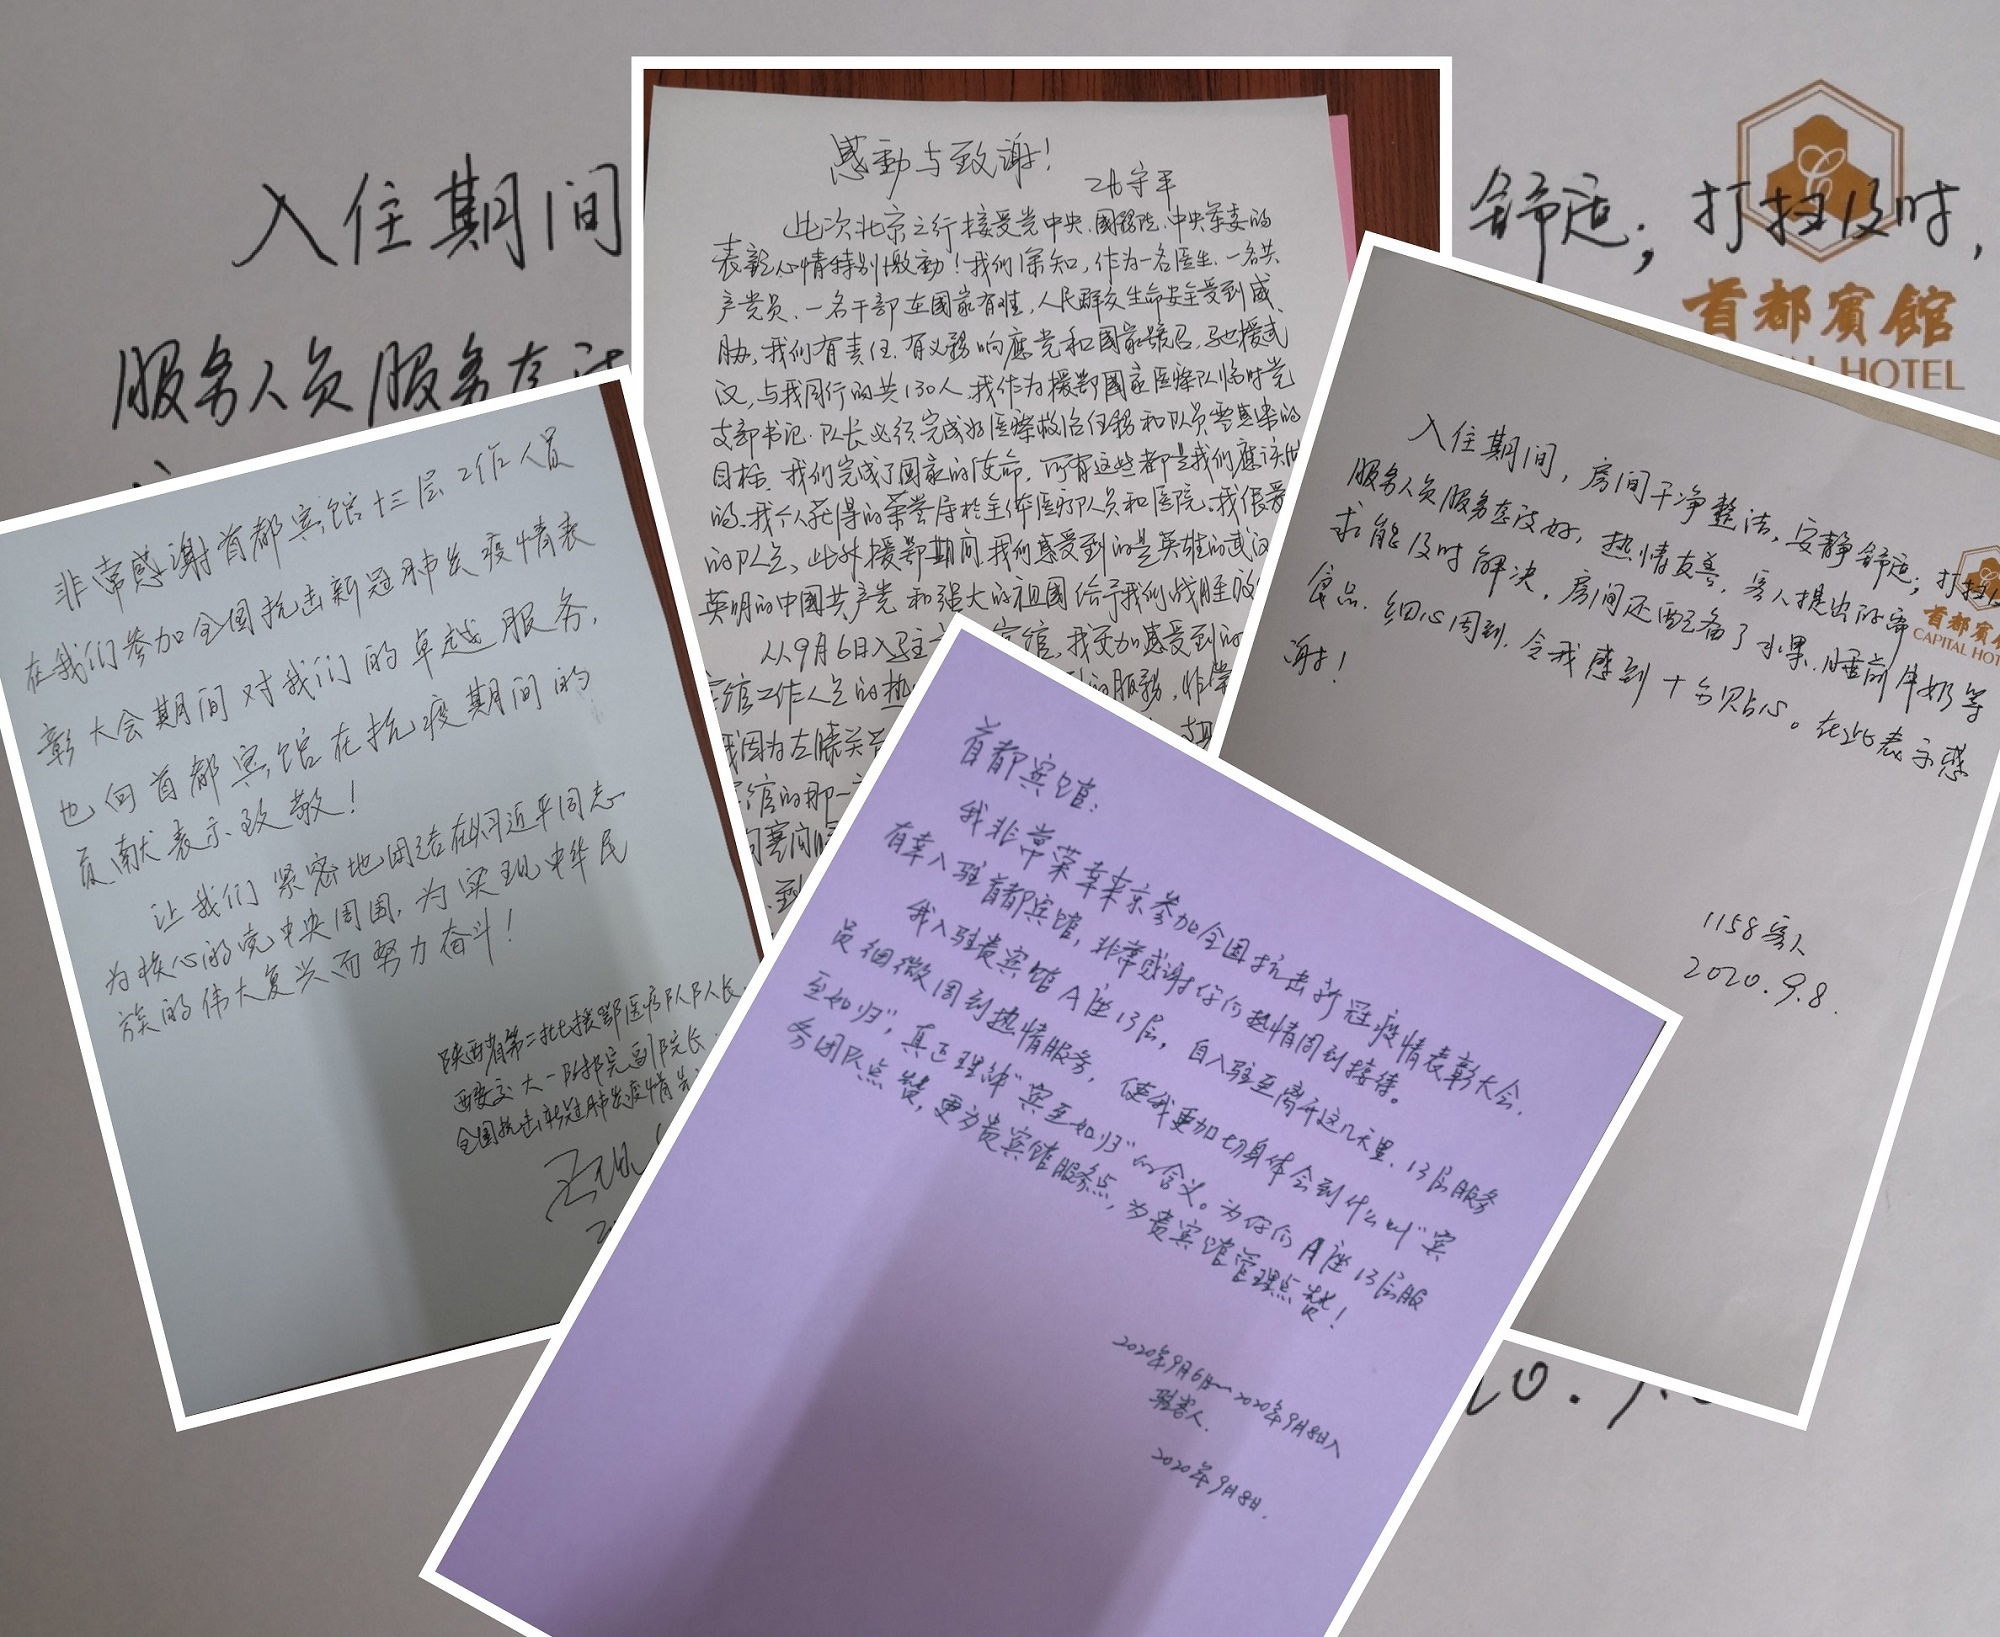 入住期间
舒适；打扫及时，
服务人员服务态
首都賓館
CAPITAL HOTEL
感動与致谢！
此次北京之行接受党中央、國務院、中央军委的
表彰心情特别激動！我们深知，作为一名医生、一名共
产党员、一名干部在国家有难，人民群众生命安全受到威
胁，我们有责任、有义務响應党和國家號召，驰援武
汉，与我同行的共130人，我作为援鄂國家医療队临时党
支部书记、队长必须完成好医療救治任務和队员零感染的
目标。我们完成了国家的使命，所有这些都是我们應该做
的。我个人获得的荣誉属於全体医疗队员和医院。我很爱
的队员。此外援鄂期间，我们感受到的是英雄的武汉
英明的中國共产党和强大的祖國给予我们战胜
从9月6日入驻 宾馆，我更加感受到的
宾馆工作人员的热 的服務，非常
我因为左膝关
宾馆的那一
非常感谢首都宾馆十三层工作人员
在我们参加全国抗击新冠肺炎疫情表
彰大会期间对我们的卓越服务，
也向首都宾馆在抗疫期间的
贡献表示致敬！
让我们紧密地团结在以习近平同志
为核心的党中央周围，为实现中华民
族的伟大复兴而努力奋斗！
陕西省第二批援鄂医疗队队长、
西安交大一附院副院长、
全国抗击新冠肺炎疫情先
入住期间，房间干净整洁，安静舒适；打扫及
服务人员服务态度好，热情友善，客人提出的需
求能及时解决，房间还配备了水果、睡前牛奶等
食品，细心周到，令我感到十分贴心。在此表示感
谢！
首都賓
CAPITAL HOT
1158客人
2020.9.8.
首都宾馆：
我非常荣幸来京参加全国抗击新冠疫情表彰大会，
有幸入驻首都宾馆，非常感谢你们热情周到接待。
我入驻贵宾馆A座13层，自入驻至离开这几天里，13层服务
员细微周到热情服务，使我更加切身体会到什么叫“宾
至如归”，真正理解“宾至如归”的含义。为你们A座13层服
务团队点赞，更为贵宾馆服务点，为贵宾馆管理点赞！
2020年9月6日～2020年9月8日入
驻客人.
2020年9月8日.